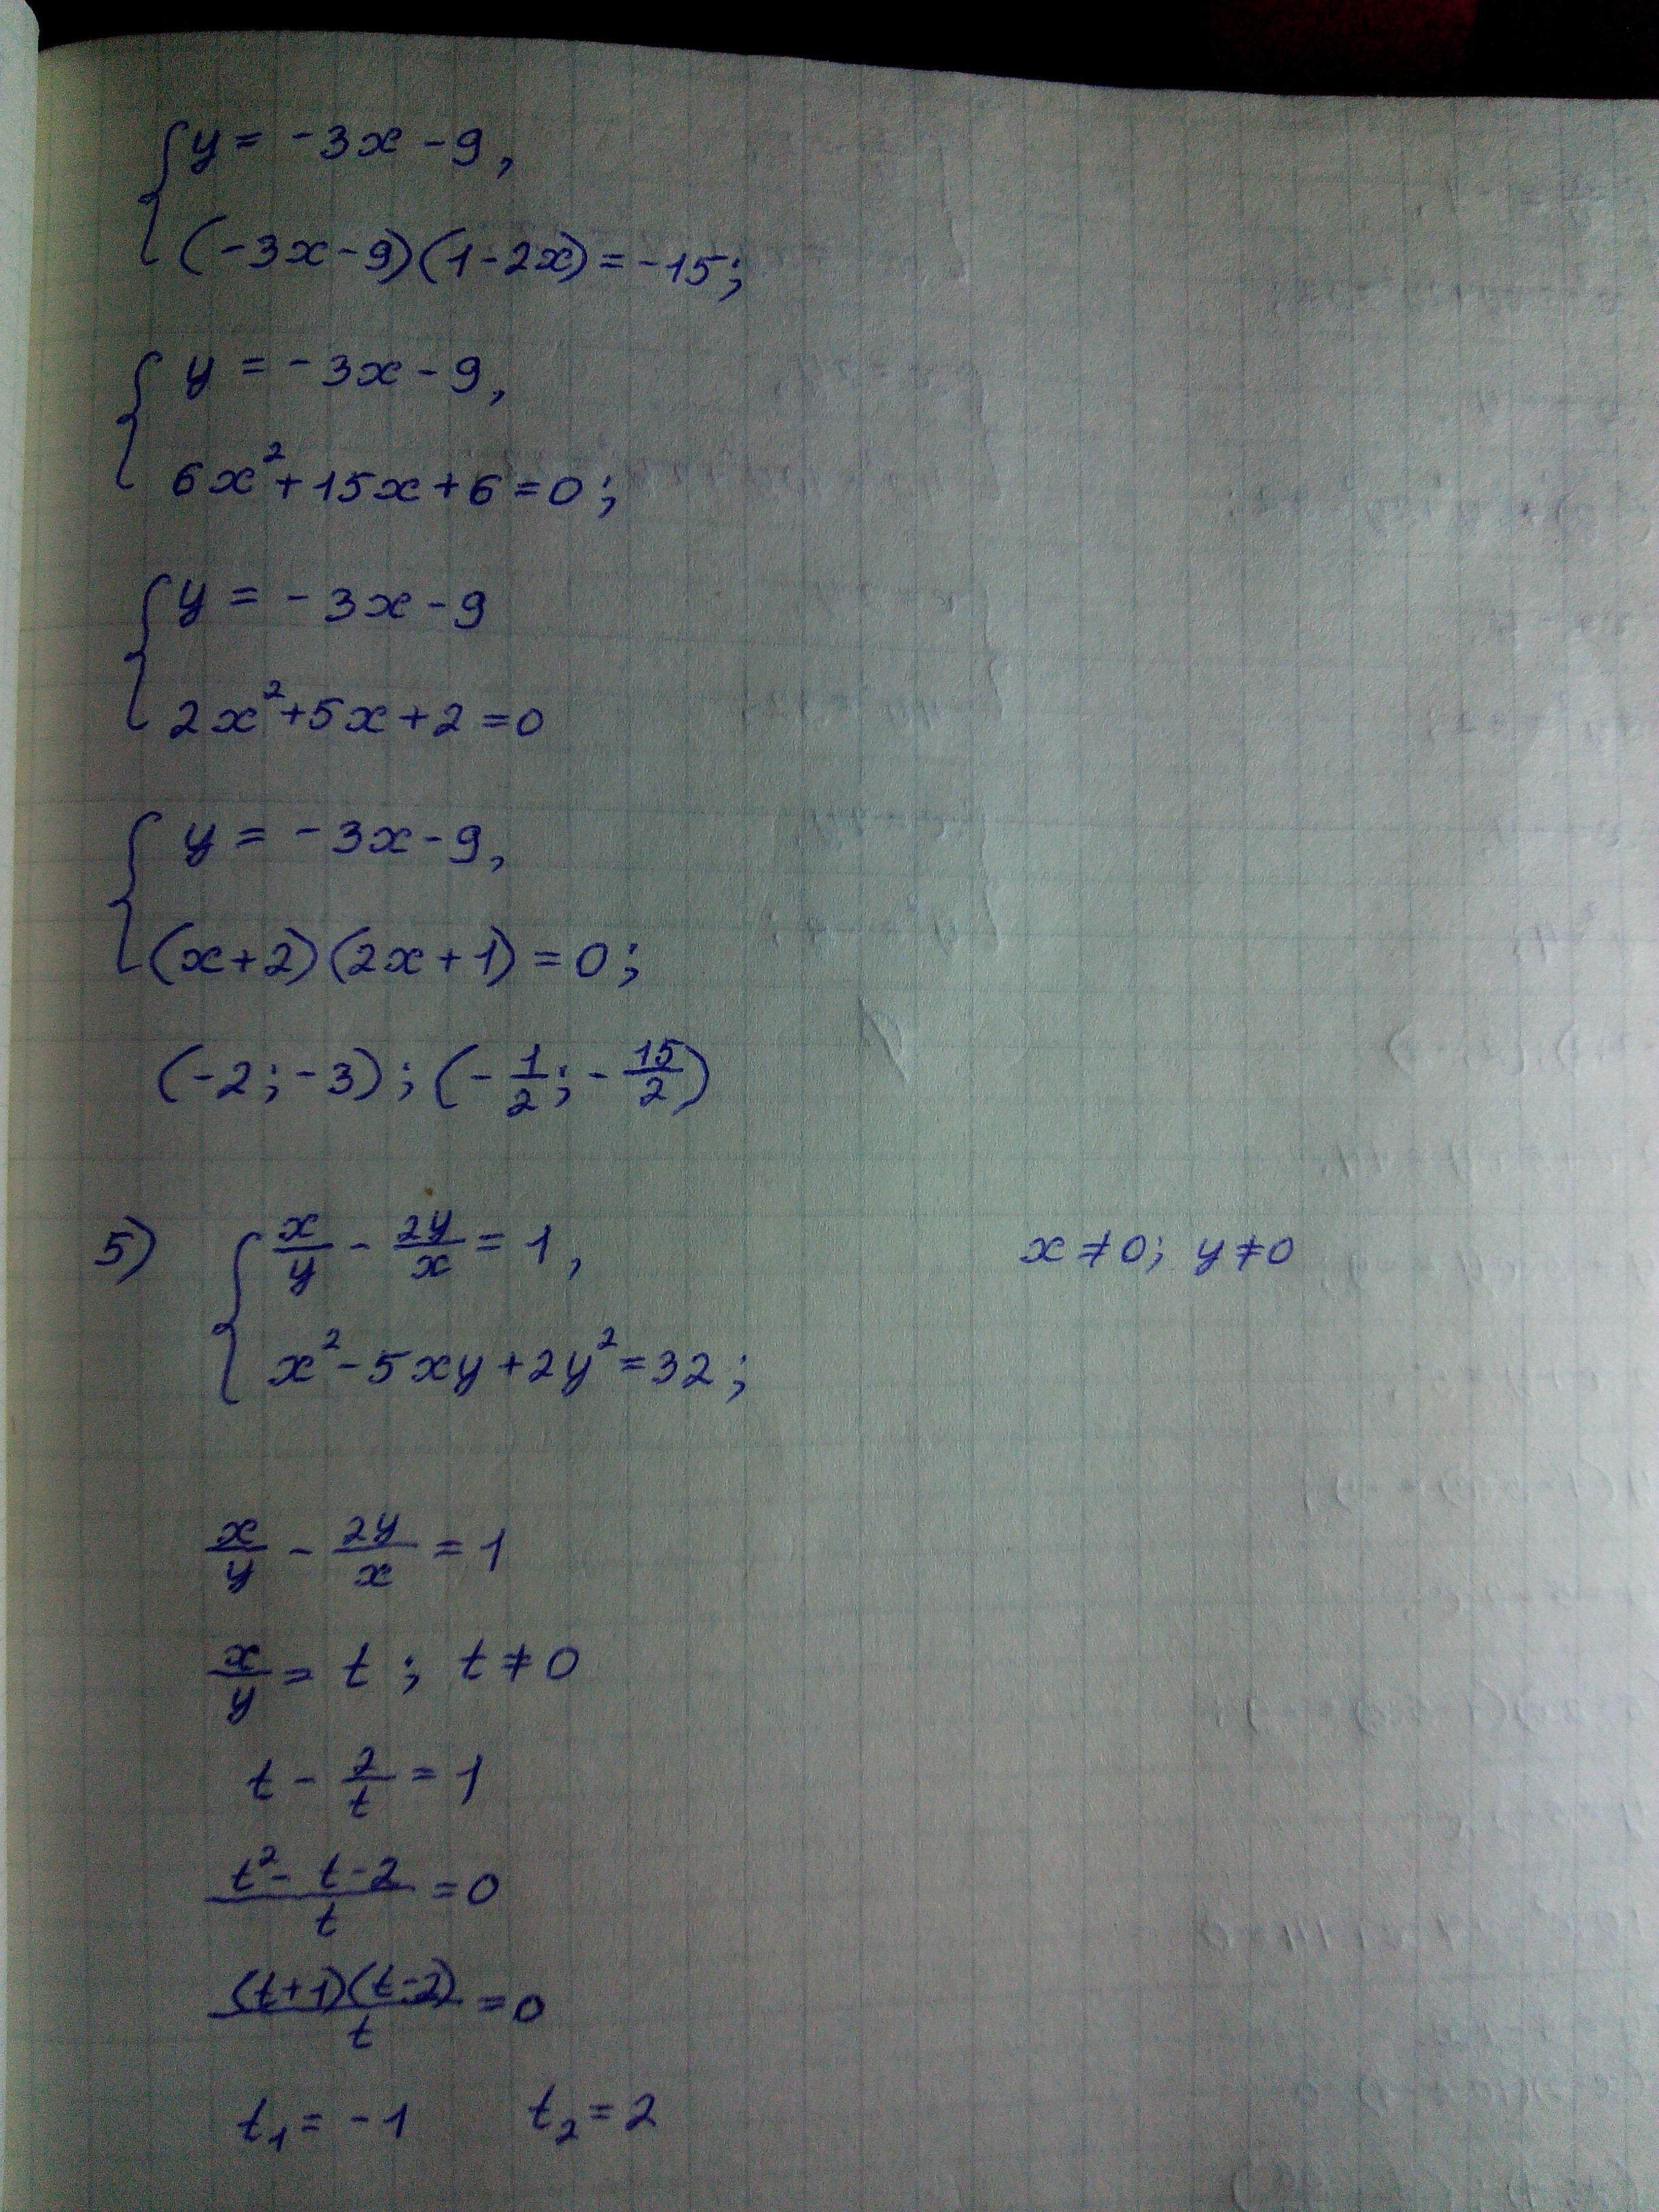 { y = -3x - 9,
(-3x - 9)(1 - 2x) = -15;
{ y = -3x - 9,
6x² + 15x + 6 = 0;
{ y = -3x - 9
2x² + 5x + 2 = 0
{ y = -3x - 9,
(x + 2)(2x + 1) = 0;
(-2; -3); (-1/2; -15/2)
5) { x/y - 2y/x = 1, x ≠ 0; y ≠ 0
x² - 5xy + 2y² = 32;
x/y - 2y/x = 1
x/y = t; t ≠ 0
t - 2/t = 1
(t² - t - 2)/t = 0
((t+1)(t-2))/t = 0
t₁ = -1 t₂ = 2